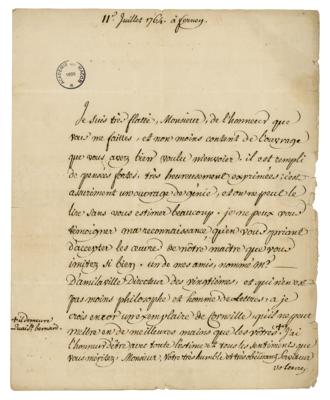 11e. Juillet 1764. à ferney
ACADEMIE DE MACON
Je suis très flatté, Monsieur, de l'honneur que
vous me faittes, et non moins content de l'ouvrage
que vous avez bien voulu m'envoier. il est rempli
de pensées fortes, très heureusement exprimées; c'est
assurément un ouvrage de génie, et on ne peut le
lire sans vous estimer beaucoup. je ne peux vous
témoigner ma reconnaissance qu'en vous priant
d'accepter les œuvre de nôtre maitre que vous
imitez si bien. un de mes amis, nommé Mr.
D'amilaville Directeur des vingtièmes, et qui n'en est
pas moins philosophe et homme de Lettres, a je
crois encor un exemplaire de Corneille qu'il ne peut
mettre en de meilleures mains que les vôtres. + J'ai
+ il demeure
quai St. bernard.
l'honneur d'être avec toute l'estime & tous les sentiments que
vous méritez, Monsieur, Vôtre très humble et très obéissant serviteur
voltaire